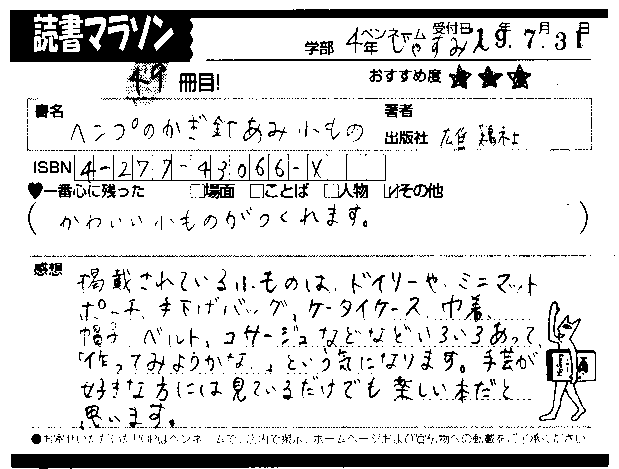 読書マラソン
学部 4年 ペンネーム しゃすみ 受付日 19年7月31日
49冊目!
おすすめ度 ★★★
書名 ヘンプのかぎ針あみ小もの
著者
出版社 雄鶏社
ISBN 4-277-43066-X
♥一番心に残った □場面 □ことば □人物 ☑その他
(かわいい小ものがつくれます。)
感想
掲載されている小ものは、ドイリーや、ミニマット
ポーチ、手下げバッグ、ケータイケース、巾着、
帽子、ベルト、コサージュなどなどいろいろあって、
「作ってみようかな。」という気になります。手芸が
好きな方には見ているだけでも楽しい本だと
思います。